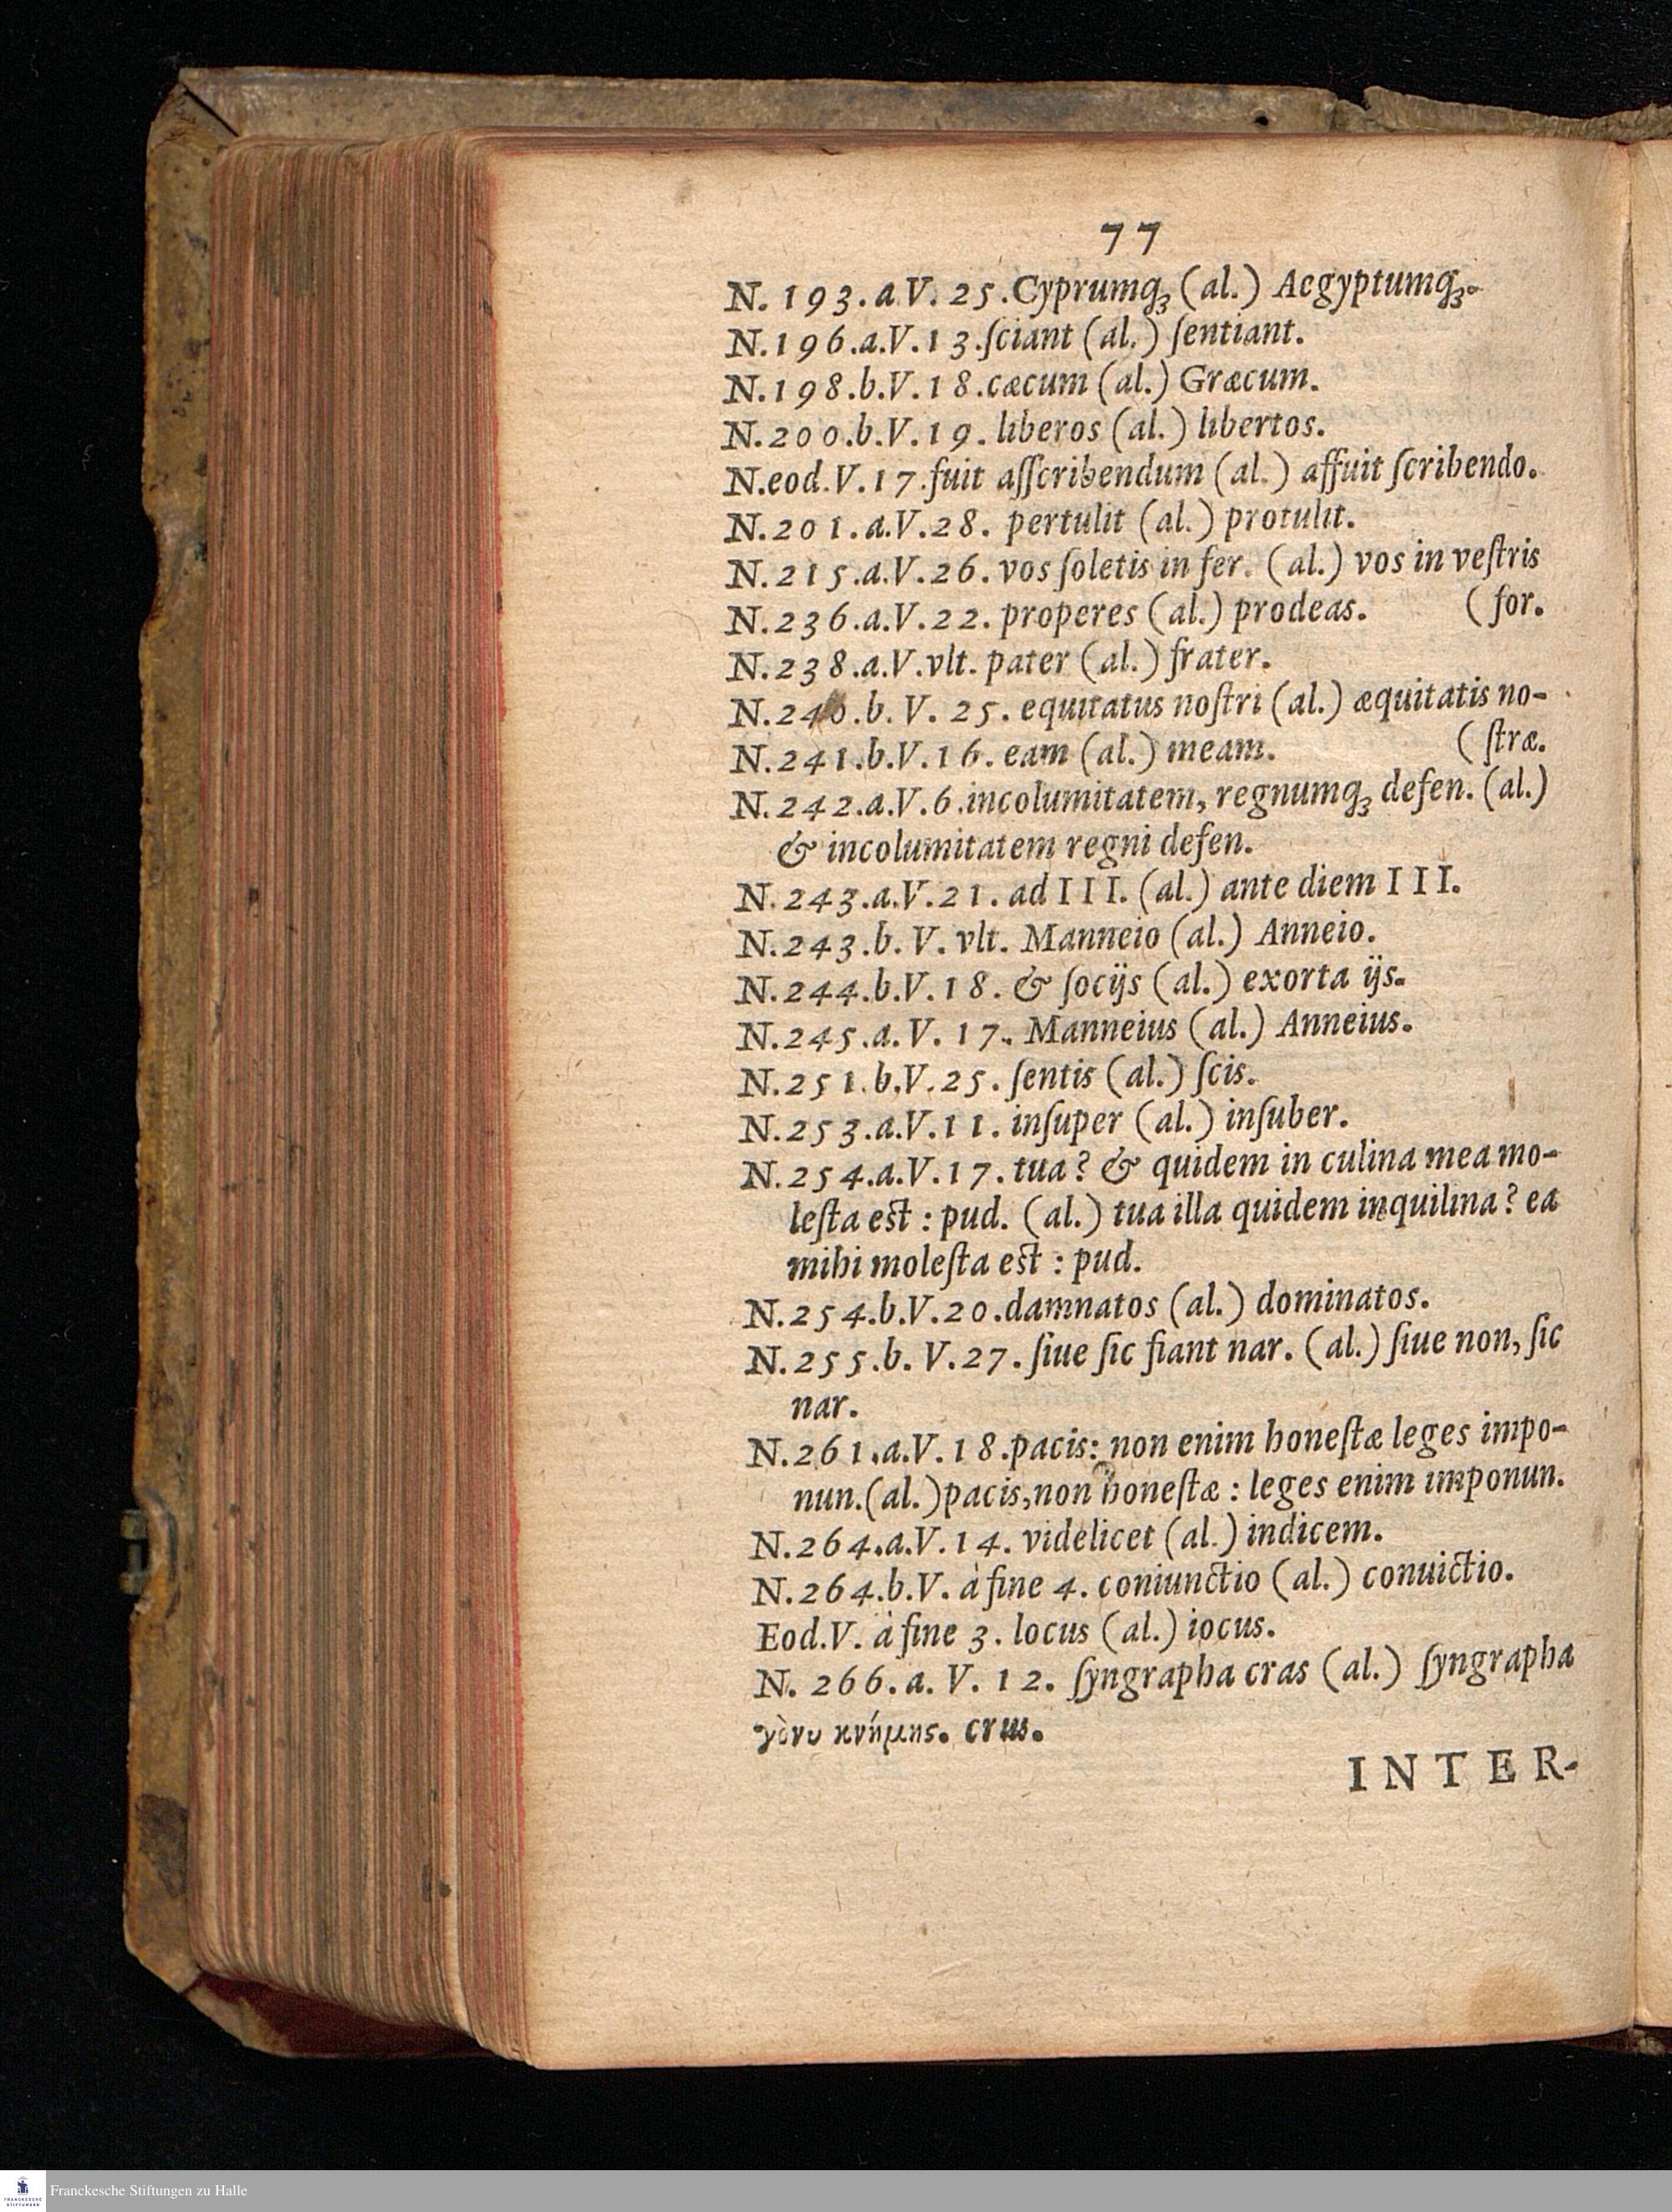 77
N. 193. a V. 25. Cyprumq́ꝫ (al.) Aegyptumq́ꝫ.
N. 196.a.V. 13.ſciant (al.) ſentiant.
N. 198.b.V. 18.cæcum (al.) Græcum.
N. 200.b.V. 19. liberos (al.) libertos.
N.eod.V. 17.fuit aſſcribendum (al.) affuit ſcribendo.
N. 201. a.V. 28. pertulit (al.) protulit.
N. 215.a.V. 26. vos ſoletis in fer. (al.) vos in veſtris
N. 236.a.V. 22. properes (al.) prodeas. (for.
N. 238.a.V.vlt. pater (al.) frater.
N. 240.b. V. 25. equitatus noſtri (al.) æquitatis no-
N. 241.b.V. 16. eam (al.) meam. (ſtræ.
N. 242.a.V. 6.incolumitatem, regnumq́ꝫ defen. (al.)
& incolumitatem regni defen.
N. 243.a.V. 21. ad III. (al.) ante diem III.
N. 243.b. V. vlt. Manneio (al.) Anneio.
N. 244.b.V. 18. & ſocijs (al.) exorta ijs.
N. 245.a. V. 17. Manneius (al.) Anneius.
N. 251.b.V. 25. ſentis (al.) ſcis.
N. 253.a.V. 11. inſuper (al.) inſuber.
N. 254.a.V. 17. tua? & quidem in culina mea mo-
leſta est : pud. (al.) tua illa quidem inquilina? ea
mihi moleſta est : pud.
N. 254.b.V. 20.damnatos (al.) dominatos.
N. 255.b. V. 27. ſiue ſic fiant nar. (al.) ſiue non, ſic
nar.
N. 261.a.V. 18.pacis: non enim honeſtæ leges impo-
nun.(al.)pacis,non honeſtæ : leges enim imponun.
N. 264.a.V. 14. videlicet (al.) indicem.
N. 264.b.V. à fine 4. coniunctio (al.) conuictio.
Eod.V. à fine 3. locus (al.) iocus.
N. 266. a. V. 12. ſyngrapha cras (al.) ſyngrapha
γὸνυ κνήμης. crus.
INTER-
FRANCKESCHE STIFTUNGEN
Franckesche Stiftungen zu Halle